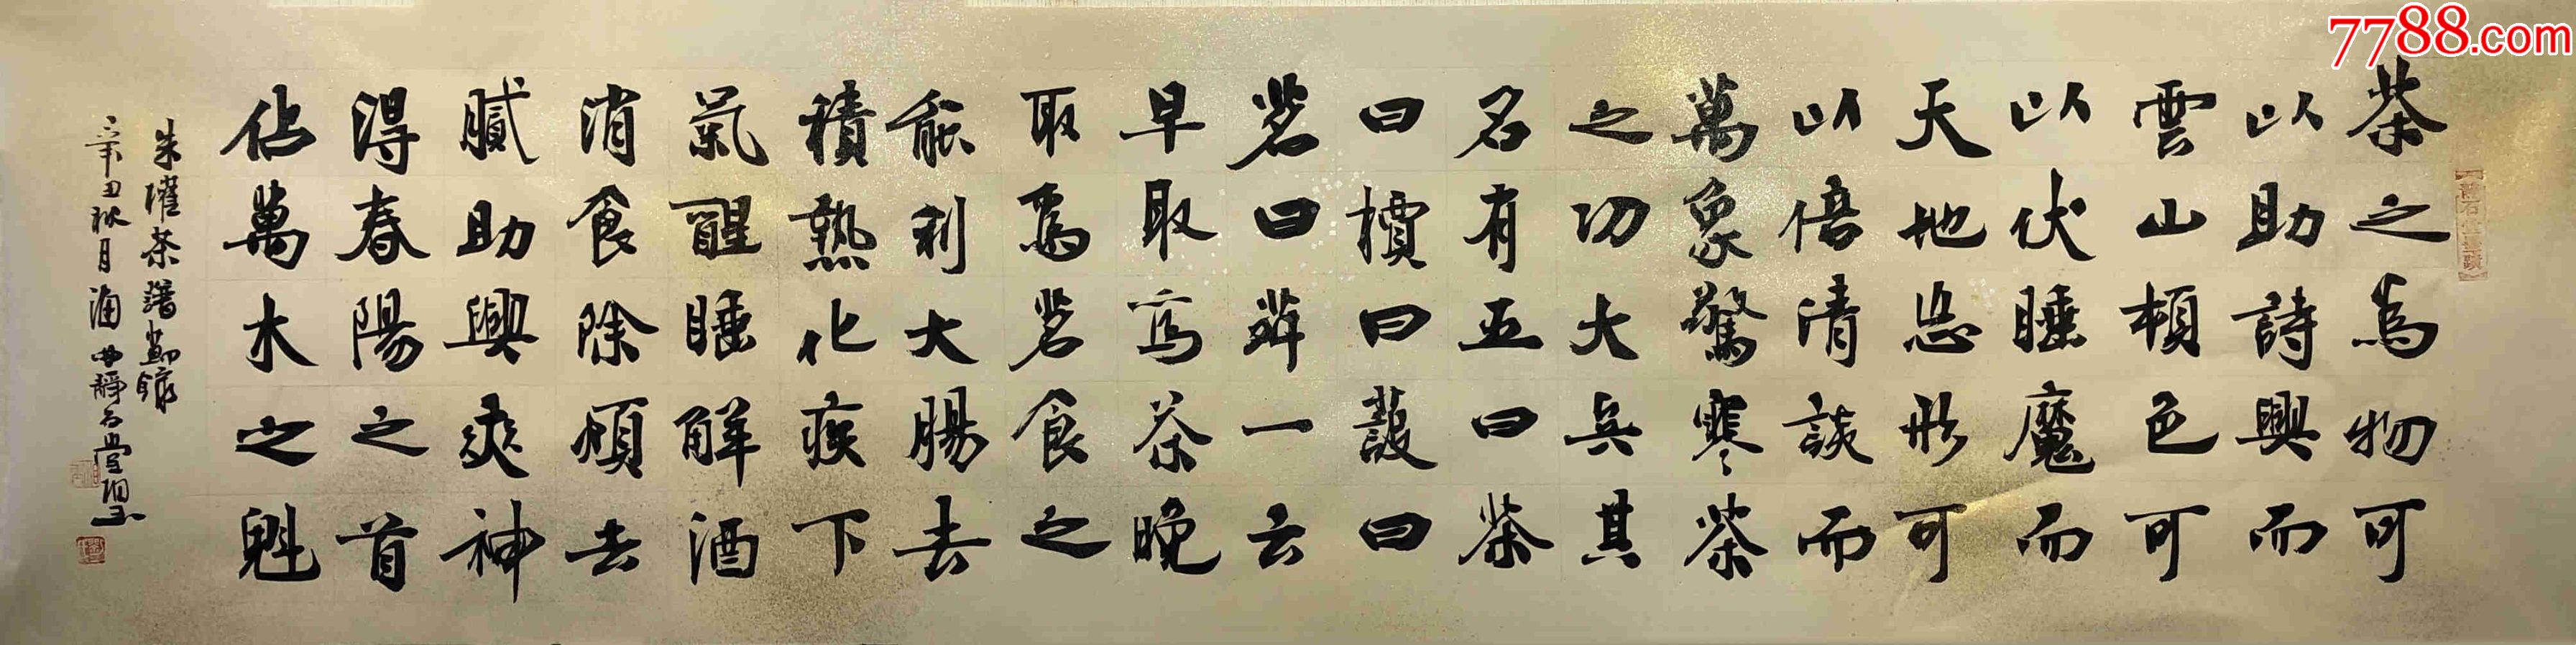 茶之為物可
以助詩興而
雲山頓色可
以伏睡魔而
天地忘形可
以倍清談而
萬象驚寒茶
之功大矣其
名有五曰茶
曰檟曰蔎曰
茗曰荈一云
早取為茶晚
取為茗食之
能利大腸去
積熱化痰下
氣醒睡解酒
消食除煩去
膩助興爽神
得春陽之首
佔萬木之魁
朱權茶譜節錄
辛丑秋月海曲靜石堂
7788.com